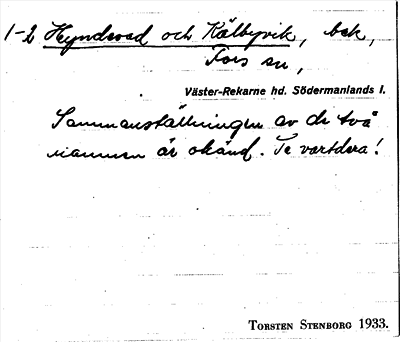 1-2 Hyndevad och Kälbyvik, bek,
Tors sn,
Väster-Rekarne hd. Södermanlands l.
Sammanställningen av de två
namnen är okänd. Se vartdera!
TORSTEN STENBORG 1933.